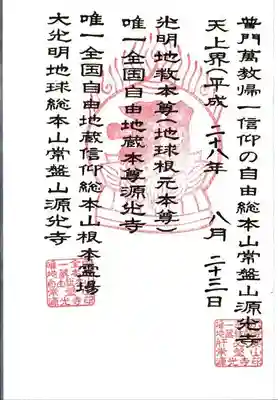 普門萬教帰一信仰の自由総本山常盤山源光寺
天上界(平成 二十八年 八月 二十三日
光明地救本尊(地球根元本尊)
唯一全国自由地蔵本尊源光寺
唯一全国自由地蔵信仰総本山根本霊場
大光明地球総本山常盤山源光寺